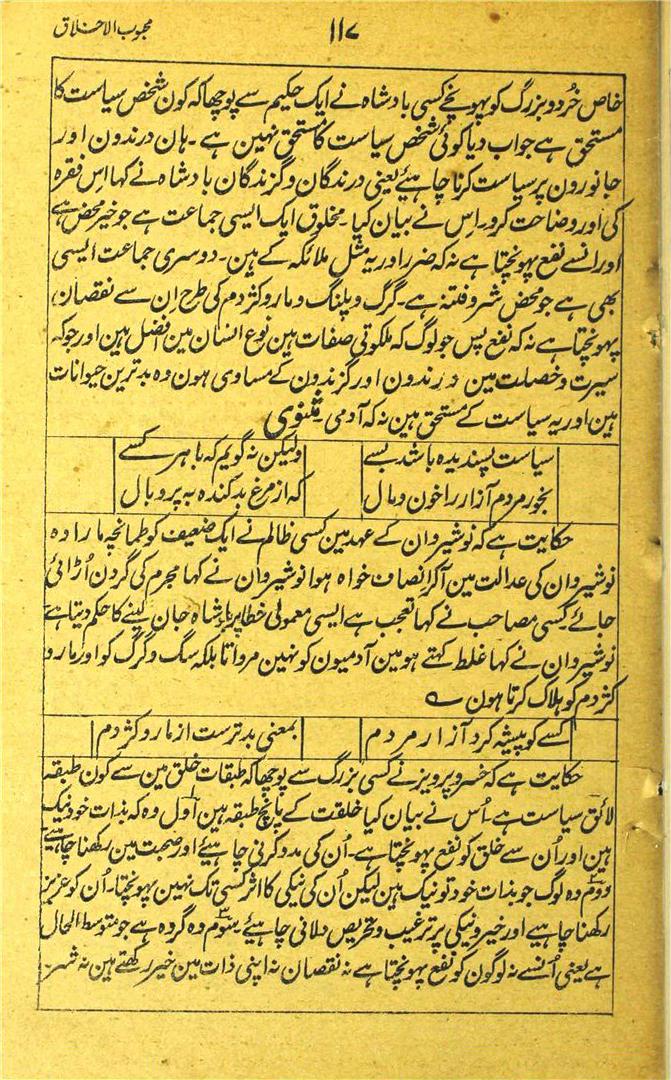 محبوب الاخلاق
۱۱۷
خاص خُرد و بزرگ کو پہونچے کسی بادشاہ نے ایک حکیم سے پوچھا کہ کون شخص سیاست کا
مستحق ہے جواب دیا کوئی شخص سیاست کا مستحق نہین ہے۔ ہان درندون اور
جانورون پر سیاست کرنا چاہیئے یعنی درندگان و گزندگان بادشاہ نے کہا اس فقرہ
کی اور وضاحت کرو۔ اِس نے بیان کیا۔ مخلوق ایک ایسی جماعت ہے جو خیر محض ہے
اور انسے نفع پہونچتا ہے نہ کہ ضرر اور یہ مثل ملائکہ کے ہین۔ دوسری جماعت ایسی
بھی ہے جو محض شر و فتنہ ہے۔ گرگ و پلنگ و مار و کژدم کی طرح اِن سے نقصان
پہونچتا ہے نہ کہ نفع پس جو لوگ کہ ملکوتی صفات ہین نوع انسان مین افضل ہین اور جو کہ
سیرت و خصلت مین درندون اور گزندون کے مساوی ہون وہ بدترین حیوانات
ہین اور یہ سیاست کے مستحق ہین نہ کہ آدمی۔ مثنوی
سیاست پسندیدہ باشد بسے ولیکن نہ گویم کہ باہر کسے
بخور مردم آزار را خون و مال کہ از مرغ بد کندہ بہ پر و بال
حکایت ہے کہ نوشیروان کے عہد مین کسی ظالم نے ایک ضعیف کو طمانچہ مارا وہ
نوشیروان کی عدالت مین آکر انصاف خواہ ہوا نوشیروان نے کہا مجرم کی گردن اُڑائی
جائے۔ کسی مصاحب نے کہا تعجب ہے ایسی معمولی خطا پر بادشاہ جان لینے کا حکم دیتا ہے
نوشیروان نے کہا غلط کہتے ہو مین آدمیون کو نہین مرواتا بلکہ سگ و گرگ کو اور مار و
کژدم کو ہلاک کرتا ہون ؎
کسے کو پیشہ کرد آزار مردم بمعنی بدترست از مار و کژدم
حکایت ہے کہ خسرو پرویز نے کسی بزرگ سے پوچھا کہ طبقات خلق مین سے کون طبقہ
لائق سیاست ہے۔ اُس نے بیان کیا خلقت کے پانچ طبقہ ہین اول وہ کہ بذات خود نیک
ہین اور اُن سے خلق کو نفع پہونچتا ہے۔ اُن کی مدد کرنی چاہیئے اور صحبت مین رکھنا چاہیئے
دوم وہ لوگ جو بذات خود تو نیک ہین لیکن اُن کی نیکی کا اثر کسی تک نہین پہونچتا۔ اُن کو عزیز
رکھنا چاہیے اور خیر و نیکی پر ترغیب و تحریص دلانی چاہیئے۔ سوم وہ گروہ ہے جو متوسط الحال
ہے یعنی اُنسے نہ لوگون کو نفع پہونچتا ہے نہ نقصان نہ اپنی ذات مین خیر رکھتے ہین نہ شر۔